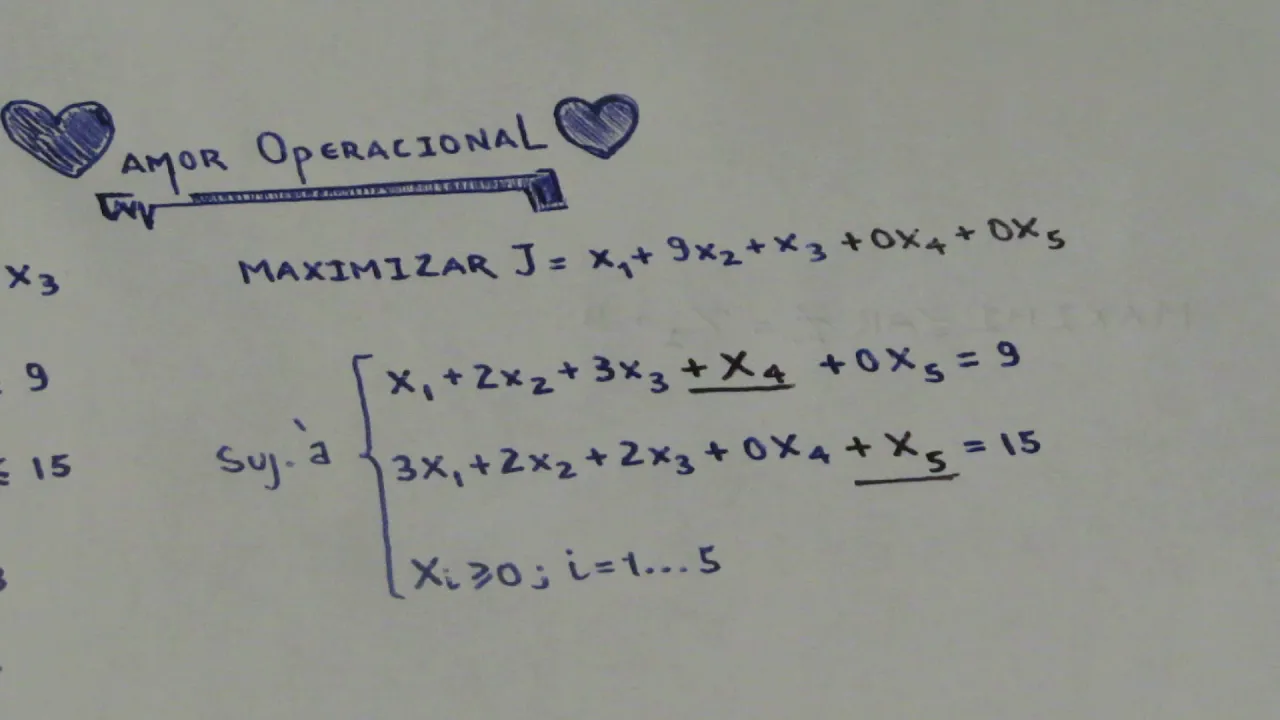 AMOR OPERACIONAL
x3 MAXIMIZAR J = x1 + 9x2 + x3 + 0x4 + 0x5
9 x1 + 2x2 + 3x3 + x4 + 0x5 = 9
≤ 15 Suj. à 3x1 + 2x2 + 2x3 + 0x4 + x5 = 15
xi ≥ 0; i = 1...5